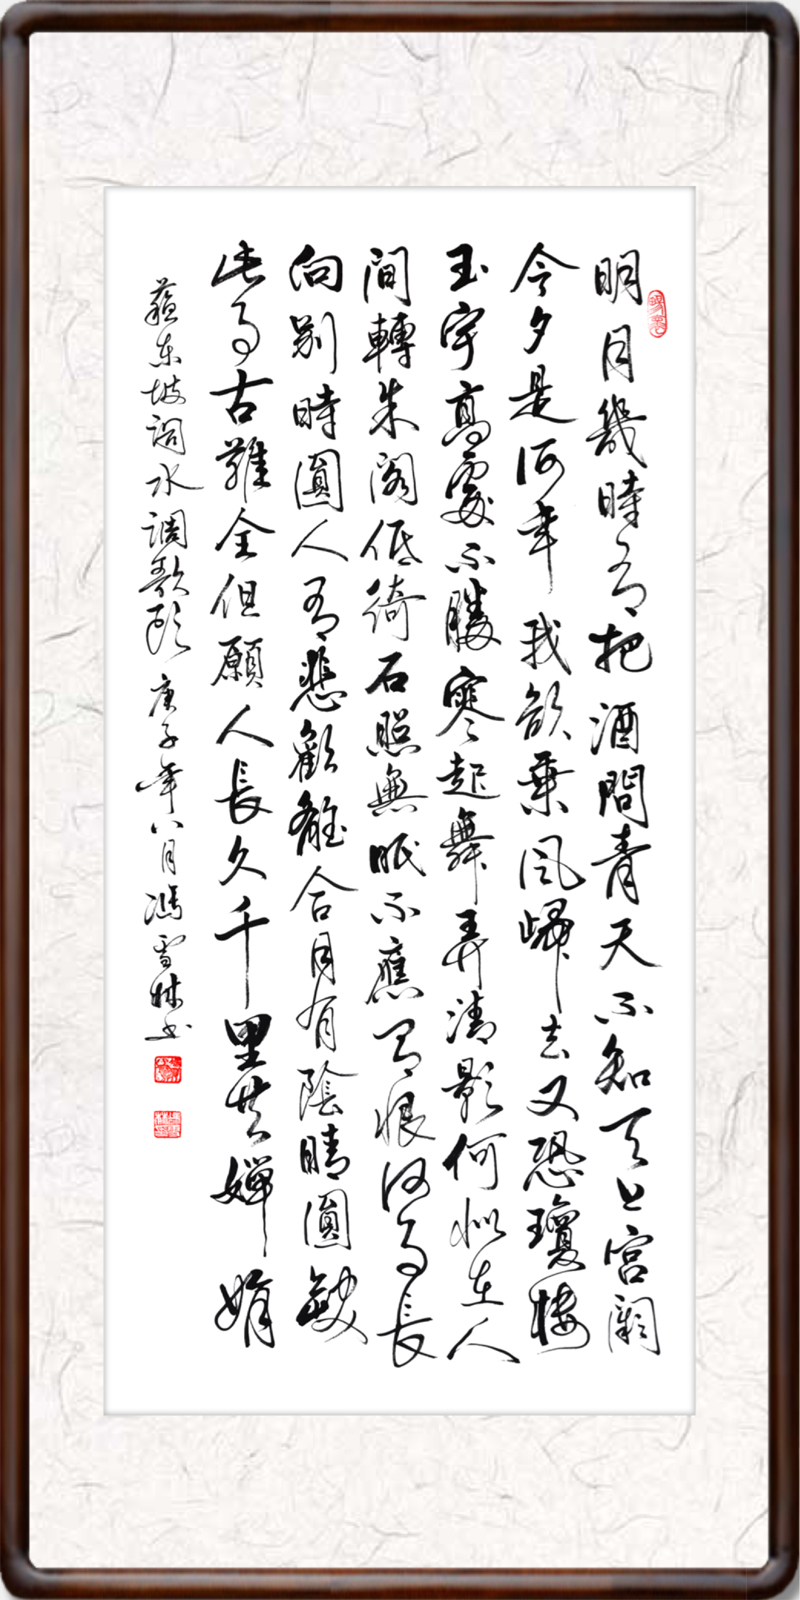 明月幾時有把酒問青天不知天上宮闕
今夕是何年我欲乘風歸去又恐瓊樓
玉宇高處不勝寒起舞弄清影何似在人
間轉朱閣低綺户照無眠不應有恨何事長
向別時圓人有悲歡離合月有陰晴圓缺
此事古難全但願人長久千里共嬋娟
蘇東坡詞水調歌頭庚子年八月馮雪林書